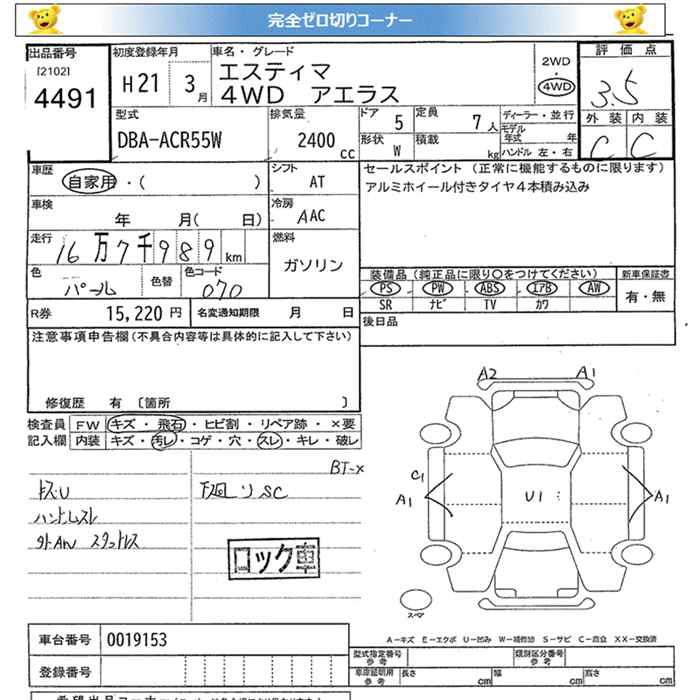 完全ゼロ切りコーナー
出品番号
[2102]
4491
初度登録年月
H21 3月
車名・グレード
エスティマ
4WD アエラス
2WD
・
4WD
評価点
3.5
外装 内装
C C
型式
DBA-ACR55W
排気量
2400
cc
ドア 5
定員 7人
形状 W
積載 kg
ディーラー・並行
モデル年式 年
ハンドル 左・右
車歴
自家用・( )
シフト
AT
セールスポイント (正常に機能するものに限ります)
アルミホイール付きタイヤ4本積み込み
車検
年 月( 日)
冷房
AAC
走行
16万7千989km
燃料
ガソリン
色
パール
色替
色コード
070
装備品 (純正品に限り○をつけてください)
PS PW ABS エアB AW
SR ナビ TV カワ
新車保証書
有・無
R券 15,220円
名変通知期限 月 日
後日品
注意事項申告欄(不具合内容等は具体的に記入して下さい)
修復歴 有 〔箇所 〕
検査員記入欄
FW キズ・飛石・ヒビ割・リペア跡・×要
内装 キズ・汚レ・コゲ・穴・スレ・キレ・破レ
BT-×
下廻りSC
ロック車
A2 A1
C1
A1
U1
A1
スペア
A-キズ E-エクボ U-凹み W-補修跡 S-サビ C-腐食 XX-交換済
車台番号 0019153
登録番号
型式指定番号
参考
類別区分番号
参考
車庫証明用
参考
長さ cm
幅 cm
高さ cm